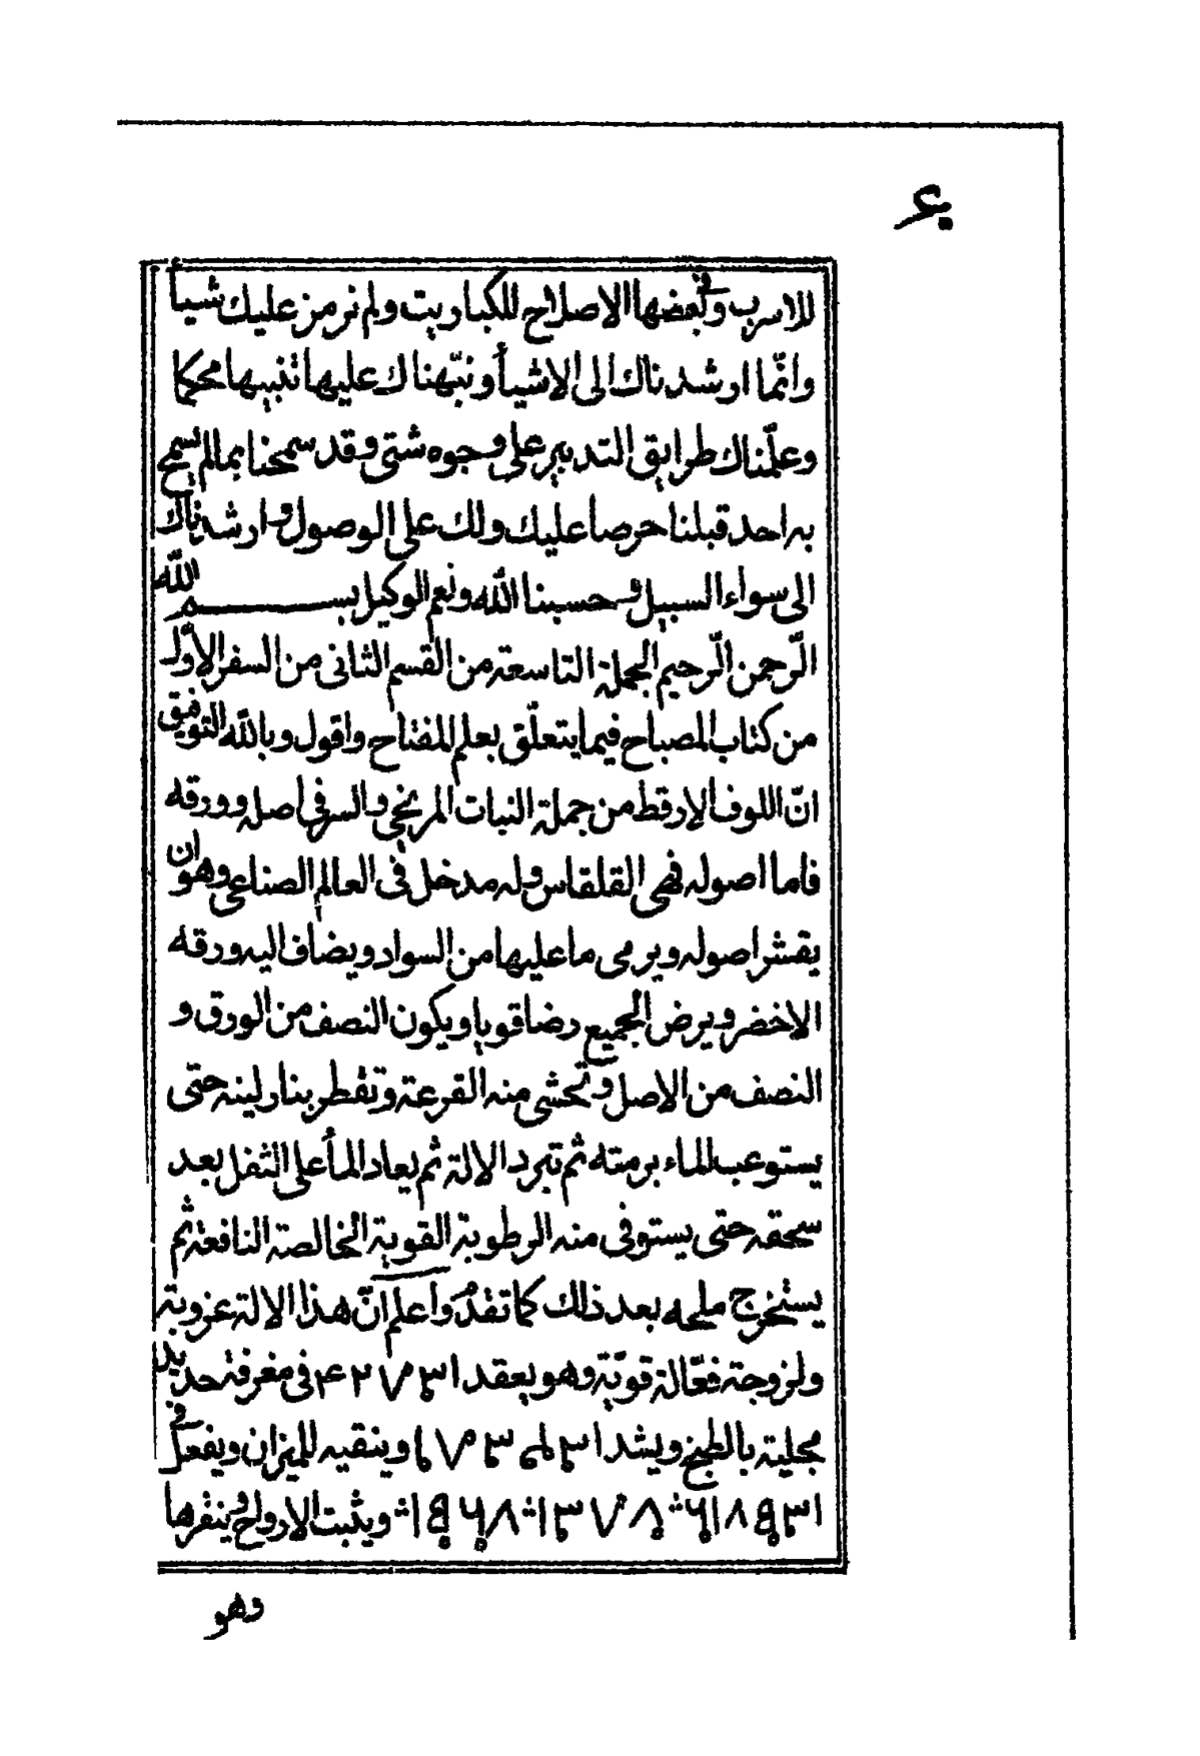 للاسرب وفى بعضها الاصلاح للكباريت ولم نرمز عليك شيأ
وانّما ارشدناك الى الاشيأ ونبّهناك عليها تنبيها محكما
وعلّمناك طرايق التدبير على وجوه شتى وقد سمحنا بما لم يسمح
به احد قبلنا حرصا عليك ولك على الوصول وارشدناك
الى سواء السبيل وحسبنا الله ونعم الوكيل بسم الله
الرّحمن الرّحيم الجملة التاسعة من القسم الثانى من السفر الاوّل
من كتاب المصباح فيما يتعلّق بعلم المفتاح واقول وبالله التوفيق
انّ اللوف الارقط من جملة النبات المريخى والسر فى اصله وورقه
فاما اصوله فهى القلقاس وله مدخل فى العالم الصناعى وهو ان
يقشر اصوله ويرمى ما عليها من السواد ويضاف اليه ورقه
الاخضر ويرض الجميع رضا قويا ويكون النصف من الورق و
النصف من الاصل وتحشى منه القرعة وتقطر بنار لينه حتى
يستوعب الماء برمته ثم تبرد الالة ثم يعاد المأ على الثفل بعد
سحقه حتى يستوفى منه الرطوبة القوية الخالصة النافعة ثم
يستخرج ملحه بعد ذلك كما تقدم واعلم انّ هذا الالة عزوبة
ولزوجة فعّالة قويّة وهو يعقد فى مغرفة حديد
مجلية بالطبخ ويشد وينقيه للميزان ويفعل فى
ويثبت الارواح وينفرها
وهو